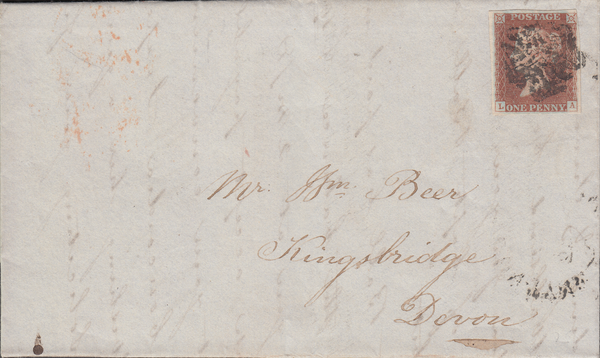 POSTAGE
L A
ONE PENNY
Mr. Wm. Beer
Kingsbridge
Devon